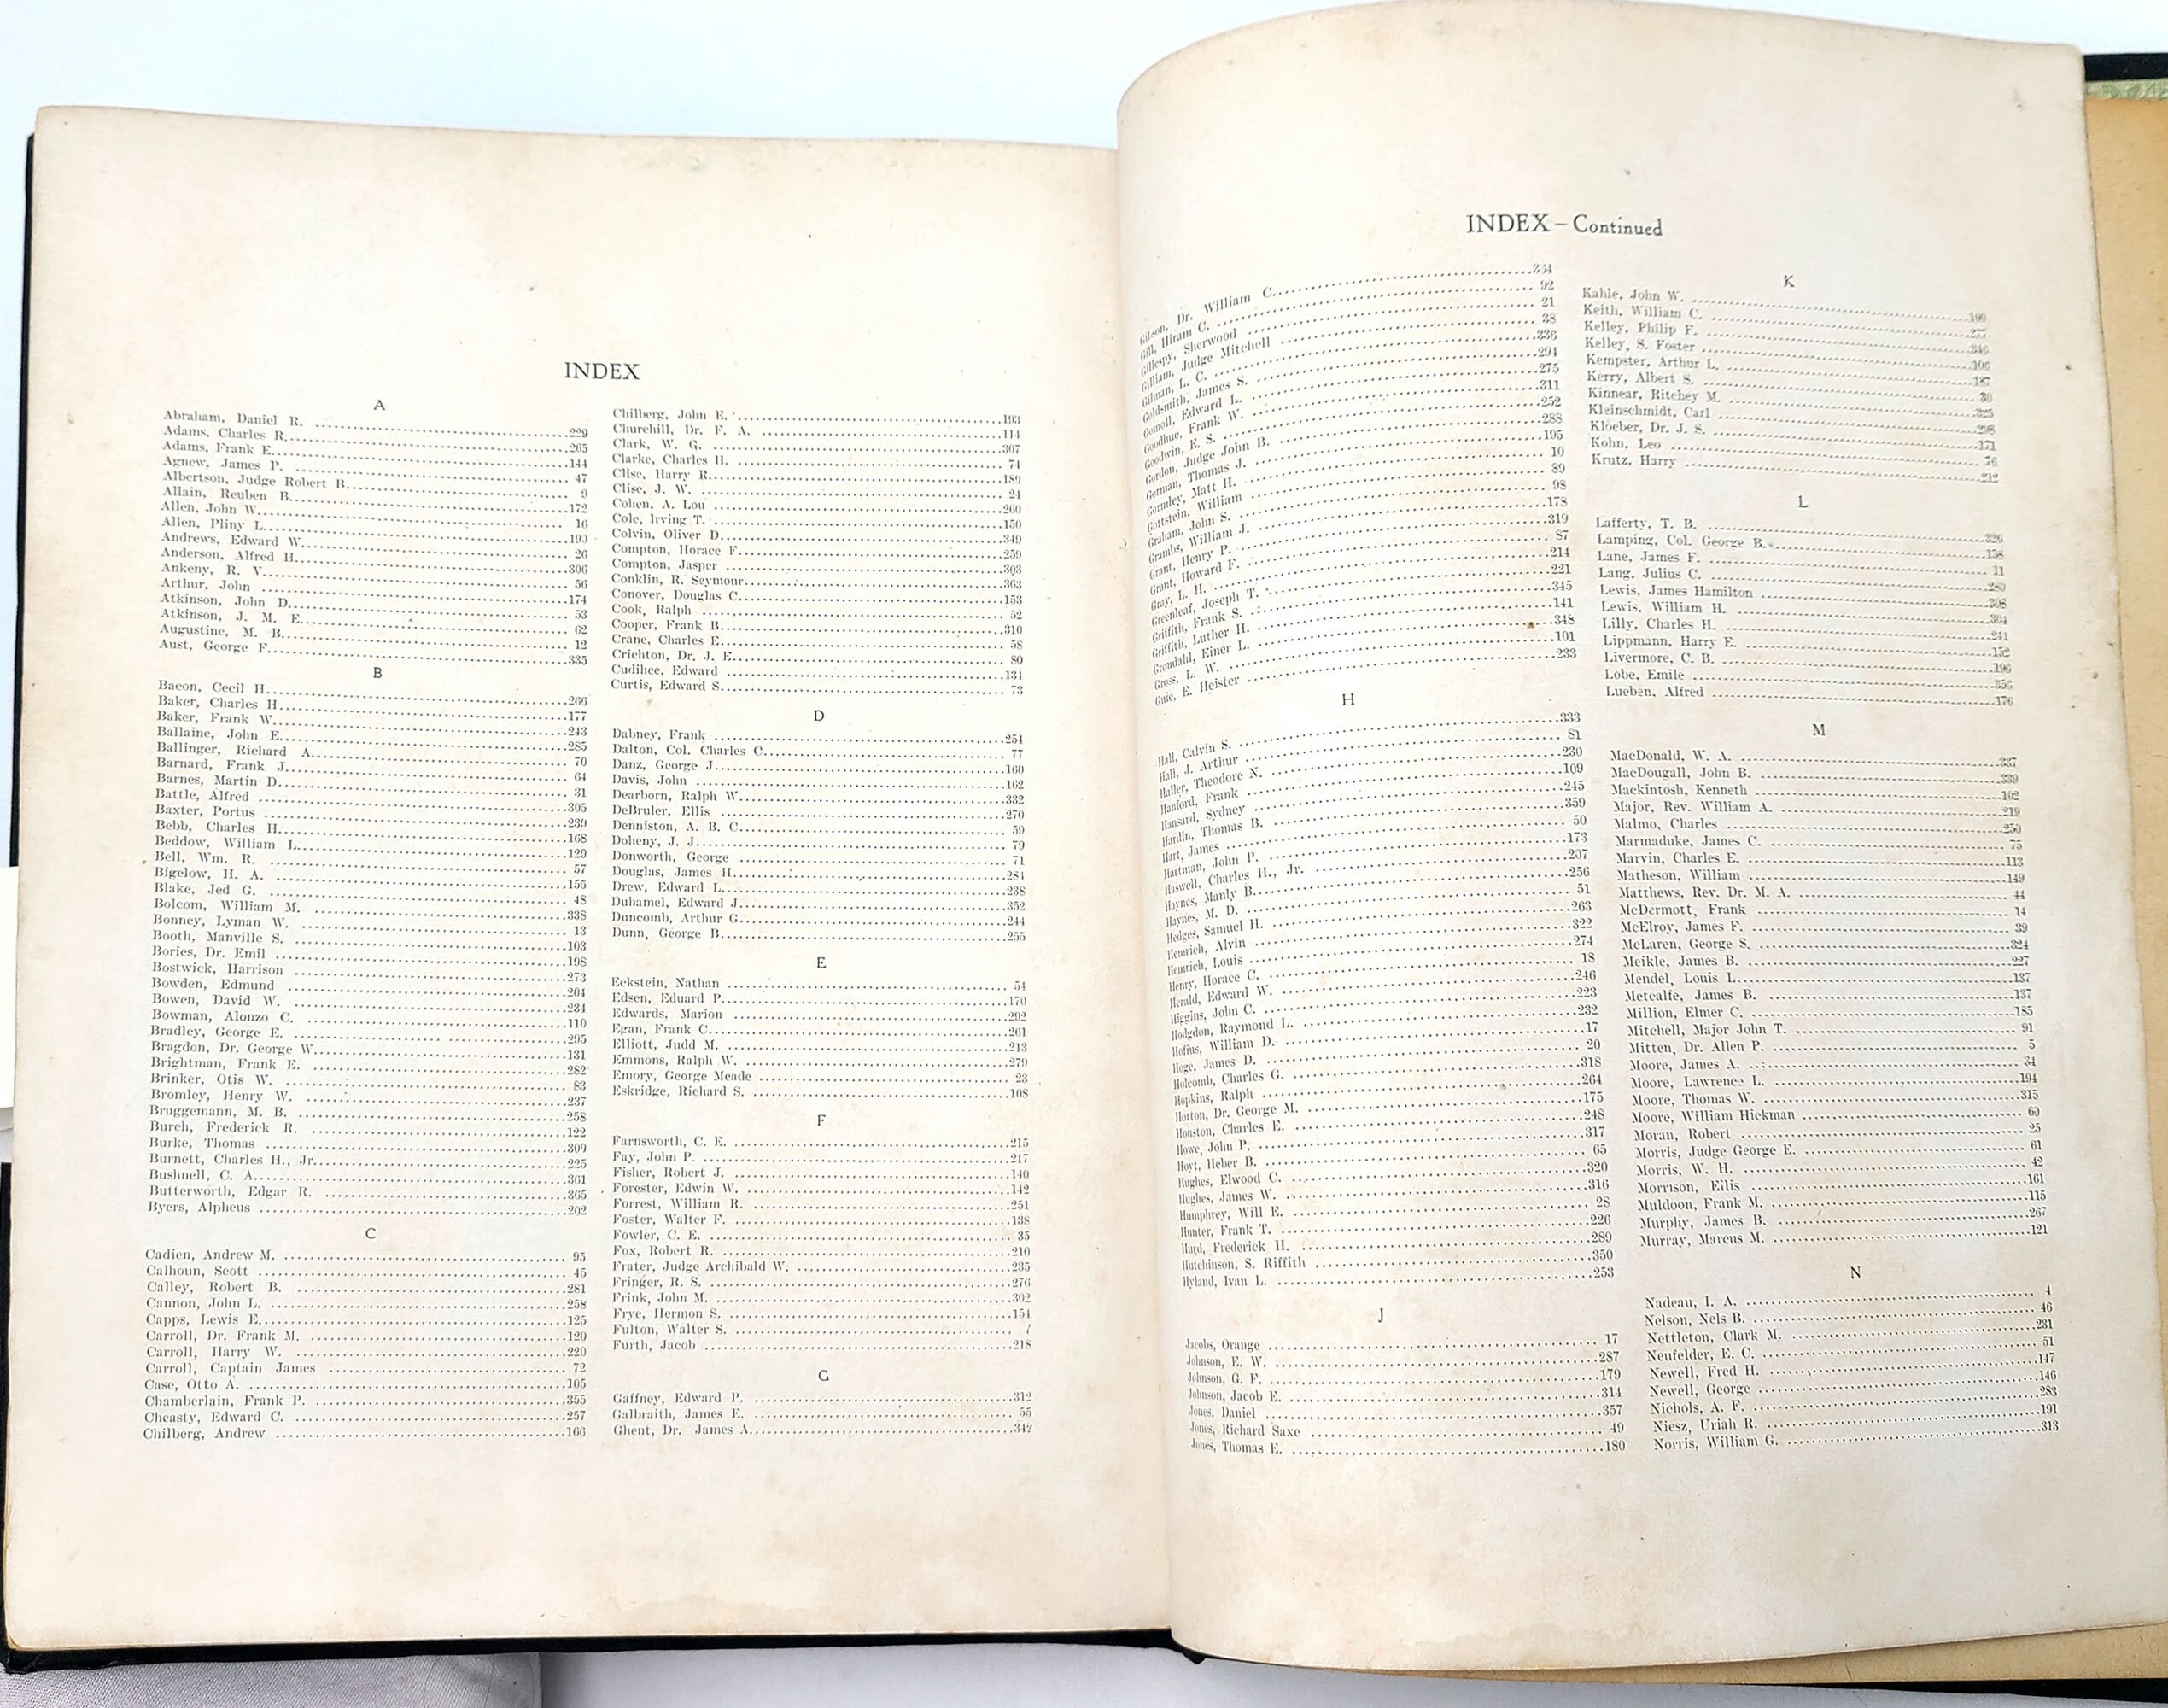 INDEX
A
Abraham, Daniel R. 229
Adams, Charles R. 265
Adams, Frank E. 144
Agnew, James P. 47
Albertson, Judge Robert B. 9
Allain, Reuben B. 172
Allen, John W. 16
Allen, Pliny L. 190
Andrews, Edward W. 26
Anderson, Alfred H. 306
Ankeny, R. V. 56
Arthur, John 174
Atkinson, John D. 53
Atkinson, J. M. E. 62
Augustine, M. B. 12
Aust, George F. 335
B
Bacon, Cecil H. 266
Baker, Charles H. 177
Baker, Frank W. 243
Ballaine, John E. 285
Ballinger, Richard A. 70
Barnard, Frank J. 64
Barnes, Martin D. 31
Battle, Alfred 305
Baxter, Portus 239
Bebb, Charles H. 168
Beddow, William L. 129
Bell, Wm. R. 57
Bigelow, H. A. 155
Blake, Jed G. 48
Bolcom, William M. 338
Bonney, Lyman W. 13
Booth, Manville S. 103
Bories, Dr. Emil 198
Bostwick, Harrison 273
Bowden, Edmund 204
Bowen, David W. 234
Bowman, Alonzo C. 110
Bradley, George E. 295
Bragdon, Dr. George W. 131
Brightman, Frank E. 282
Brinker, Otis W. 83
Bromley, Henry W. 237
Bruggemann, M. B. 258
Burch, Frederick R. 122
Burke, Thomas 309
Burnett, Charles H., Jr. 225
Bushnell, C. A. 361
Butterworth, Edgar R. 365
Byers, Alpheus 202
C
Cadien, Andrew M. 95
Calhoun, Scott 45
Calley, Robert B. 281
Cannon, John L. 258
Capps, Lewis E. 125
Carroll, Dr. Frank M. 120
Carroll, Harry W. 220
Carroll, Captain James 72
Case, Otto A. 105
Chamberlain, Frank P. 355
Cheasty, Edward C. 257
Chilberg, Andrew 166
Chilberg, John E. 193
Churchill, Dr. F. A. 114
Clark, W. G. 307
Clarke, Charles H. 74
Clise, Harry R. 189
Clise, J. W. 24
Cohen, A. Lou 260
Cole, Irving T. 150
Colvin, Oliver D. 349
Compton, Horace F. 259
Compton, Jasper 303
Conklin, R. Seymour 363
Conover, Douglas C. 153
Cook, Ralph 52
Cooper, Frank B. 310
Crane, Charles E. 58
Crichton, Dr. J. E. 80
Cudihee, Edward 134
Curtis, Edward S. 73
D
Dabney, Frank 254
Dalton, Col. Charles C. 77
Danz, George J. 160
Davis, John 162
Dearborn, Ralph W. 332
DeBruler, Ellis 270
Denniston, A. B. C. 59
Doheny, J. J. 79
Donworth, George 71
Douglas, James H. 284
Drew, Edward L. 238
Duhamel, Edward J. 352
Duncomb, Arthur G. 244
Dunn, George B. 255
E
Eckstein, Nathan 54
Edsen, Eduard P. 170
Edwards, Marion 292
Egan, Frank C. 261
Elliott, Judd M. 213
Emmons, Ralph W. 279
Emory, George Meade 23
Eskridge, Richard S. 108
F
Farnsworth, C. E. 215
Fay, John P. 217
Fisher, Robert J. 140
Forester, Edwin W. 142
Forrest, William R. 251
Foster, Walter F. 138
Fowler, C. E. 35
Fox, Robert R. 210
Frater, Judge Archibald W. 235
Fringer, R. S. 276
Frink, John M. 302
Frye, Hermon S. 154
Fulton, Walter S. 7
Furth, Jacob 218
G
Gaffney, Edward P. 312
Galbraith, James E. 55
Ghent, Dr. James A. 342
INDEX – Continued
Gibson, Dr. William C. 354
Gill, Hiram C. 92
Gillespy, Sherwood 21
Gilliam, Judge Mitchell 38
Gilman, L. C. 336
Goldsmith, James S. 294
Gomoll, Edward L. 275
Goodhue, Frank W. 311
Goodwin, E. S. 252
Gordon, Judge John B. 288
Gorman, Thomas J. 195
Gormley, Matt H. 10
Gottstein, William 89
Graham, John S. 98
Grambs, William J. 178
Grant, Henry P. 319
Grant, Howard F. 87
Gray, L. H. 214
Greenleaf, Joseph T. 221
Griffith, Frank S. 345
Griffith, Luther H. 141
Grondahl, Einer L. 348
Gross, L. W. 101
Guie, E. Heister 233
H
Hall, Calvin S. 333
Hall, J. Arthur 81
Haller, Theodore N. 230
Hanford, Frank 109
Hansard, Sydney 245
Hardin, Thomas B. 359
Hart, James 50
Hartman, John P. 173
Haswell, Charles H., Jr. 297
Haynes, Manly B. 256
Haynes, M. D. 51
Hedges, Samuel H. 263
Hemrich, Alvin 322
Hemrich, Louis 274
Henry, Horace C. 18
Herald, Edward W. 246
Higgins, John C. 223
Hodgdon, Raymond L. 232
Hofius, William D. 17
Hoge, James D. 20
Holcomb, Charles G. 318
Hopkins, Ralph 264
Horton, Dr. George M. 175
Houston, Charles E. 248
Howe, John P. 317
Hoyt, Heber B. 65
Hughes, Elwood C. 320
Hughes, James W. 316
Humphrey, Will E. 28
Hunter, Frank T. 226
Hurd, Frederick H. 280
Hutchinson, S. Riffith 350
Hyland, Ivan L. 253
J
Jacobs, Orange 17
Johnson, E. W. 287
Johnson, G. F. 179
Johnson, Jacob E. 314
Jones, Daniel 357
Jones, Richard Saxe 49
Jones, Thomas E. 180
K
Kahle, John W. 100
Keith, William C. 277
Kelley, Philip F. 346
Kelley, S. Foster 106
Kempster, Arthur L. 187
Kerry, Albert S. 30
Kinnear, Ritchey M. 325
Kleinschmidt, Carl 298
Kloeber, Dr. J. S. 171
Kohn, Leo 76
Krutz, Harry 212
L
Lafferty, T. B. 326
Lamping, Col. George B. 158
Lane, James F. 11
Lang, Julius C. 289
Lewis, James Hamilton 308
Lewis, William H. 304
Lilly, Charles H. 241
Lippmann, Harry E. 152
Livermore, C. B. 196
Lobe, Emile 356
Lueben, Alfred 176
M
MacDonald, W. A. 337
MacDougall, John B. 339
Mackintosh, Kenneth 102
Major, Rev. William A. 219
Malmo, Charles 250
Marmaduke, James C. 75
Marvin, Charles E. 113
Matheson, William 149
Matthews, Rev. Dr. M. A. 44
McDermott, Frank 14
McElroy, James F. 39
McLaren, George S. 324
Meikle, James B. 227
Mendel, Louis L. 137
Metcalfe, James B. 137
Million, Elmer C. 185
Mitchell, Major John T. 91
Mitten, Dr. Allen P. 5
Moore, James A. 34
Moore, Lawrence L. 194
Moore, Thomas W. 315
Moore, William Hickman 60
Moran, Robert 25
Morris, Judge George E. 61
Morris, W. H. 42
Morrison, Ellis 161
Muldoon, Frank M. 115
Murphy, James B. 267
Murray, Marcus M. 121
N
Nadeau, I. A. 4
Nelson, Nels B. 46
Nettleton, Clark M. 231
Neufelder, E. C. 51
Newell, Fred H. 147
Newell, George 146
Nichols, A. F. 283
Niesz, Uriah R. 191
Norris, William G. 313